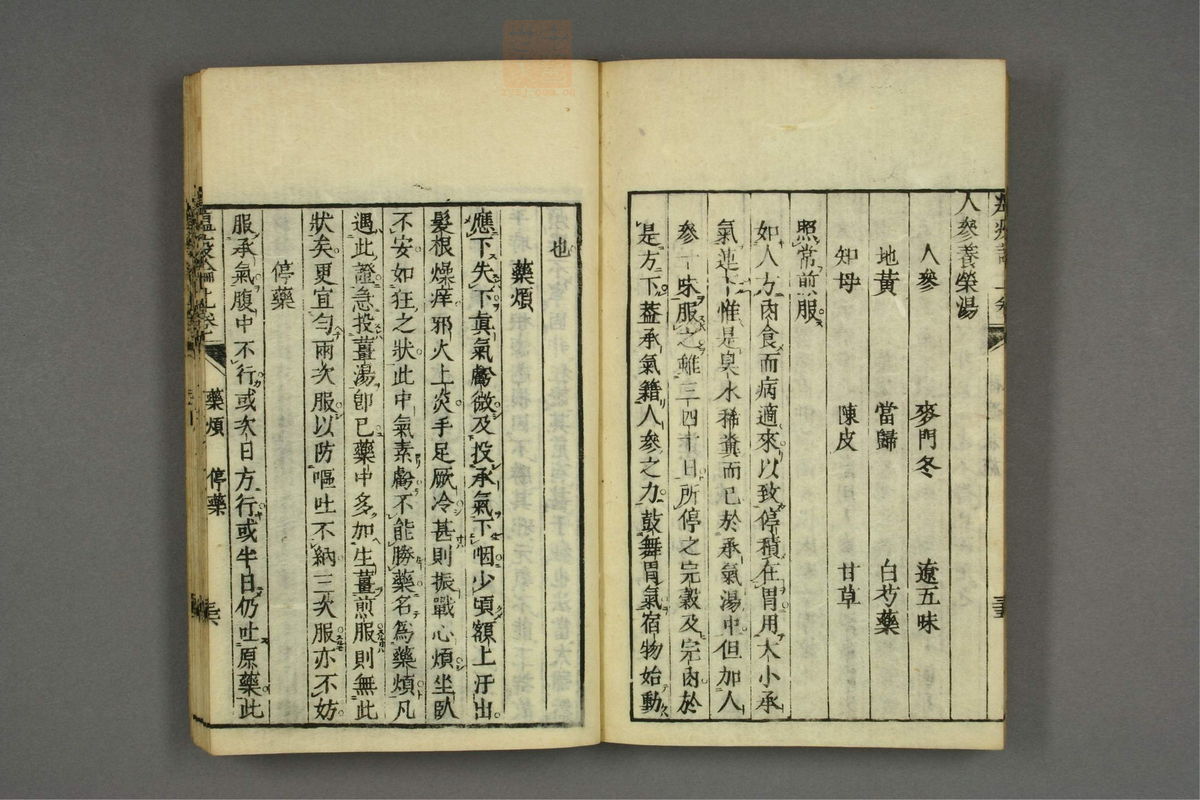 人參養榮湯
人參　麥門冬　遼五味
地黃　當歸　白芍藥
知母　陳皮　甘草
照常煎服
如人方肉食而病適來以致停積在胃用大小承
氣連下惟是臭水稀糞而已於承氣湯中但加人
參一味服之雖三四十日所停之完穀及完肉於
是方下葢承氣籍人參之力鼓舞胃氣宿物始動
也
藥煩
應下失下眞氣虧微及投承氣下咽少頃額上汗出
髮根燥痒邪火上炎手足厥冷甚則振戰心煩坐臥
不安如狂之狀此中氣素虧不能勝藥名爲藥煩凡
遇此證急投薑湯卽已藥中多加生薑煎服則無此
狀矣更宜勻兩次服以防嘔吐不納三次服亦不妨
停藥
服承氣腹中不行或次日方行或半日仍吐原藥此
藥煩　停藥